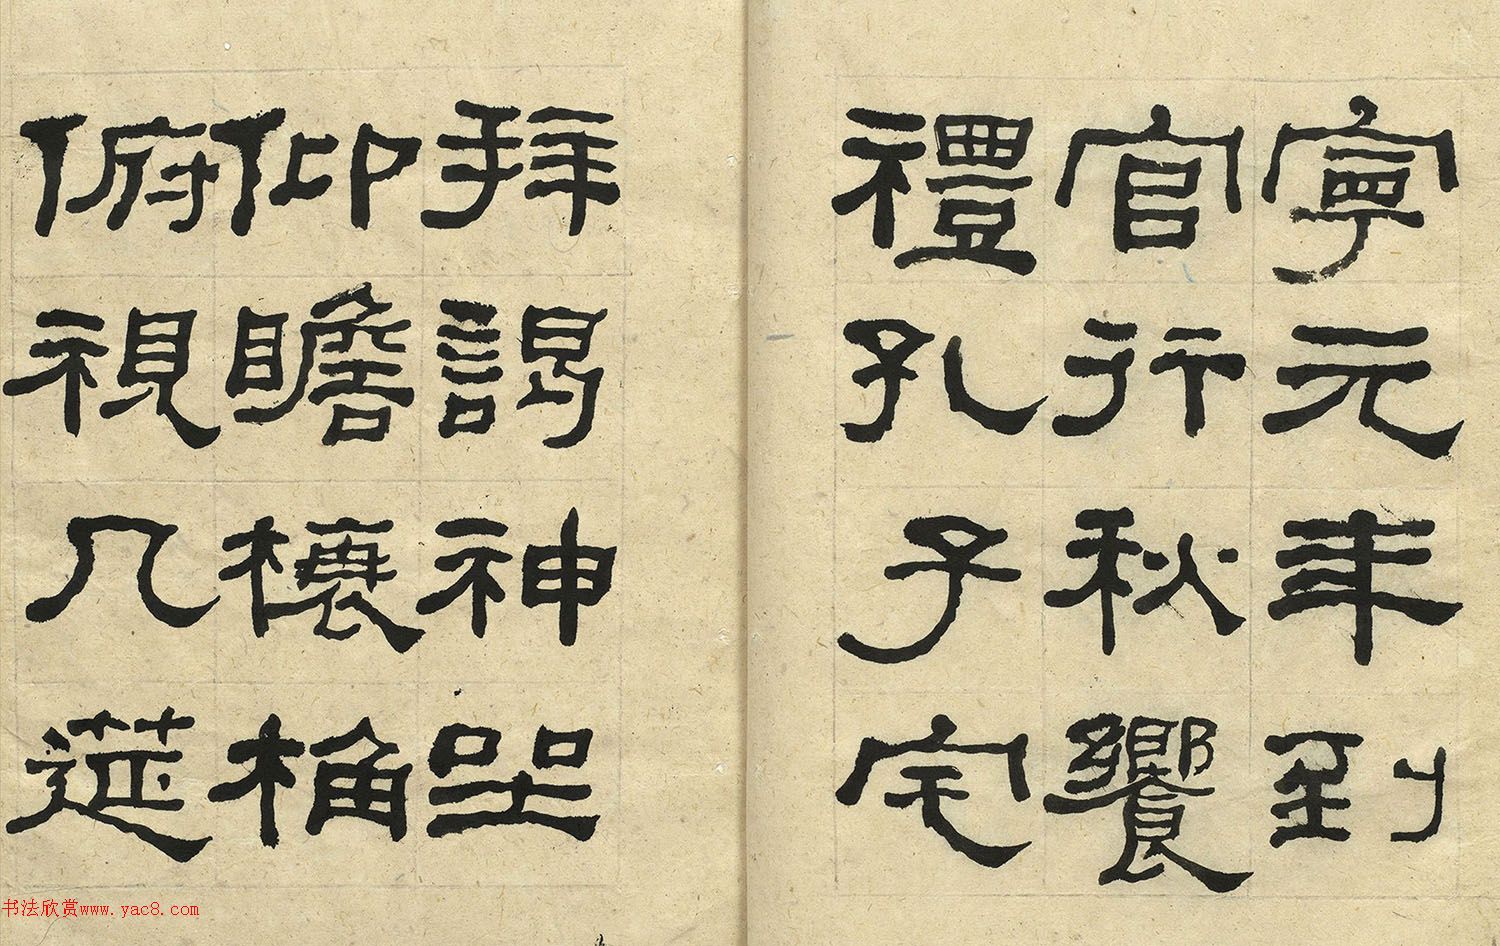 寧元年到
官行秋饗
禮孔子宅
拜謁神坐
仰瞻榱桷
俯視几筵
书法欣赏www.yac8.com